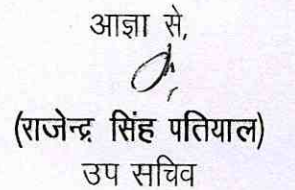 आज्ञा से,
(राजेन्द्र सिंह पतियाल)
उप सचिव